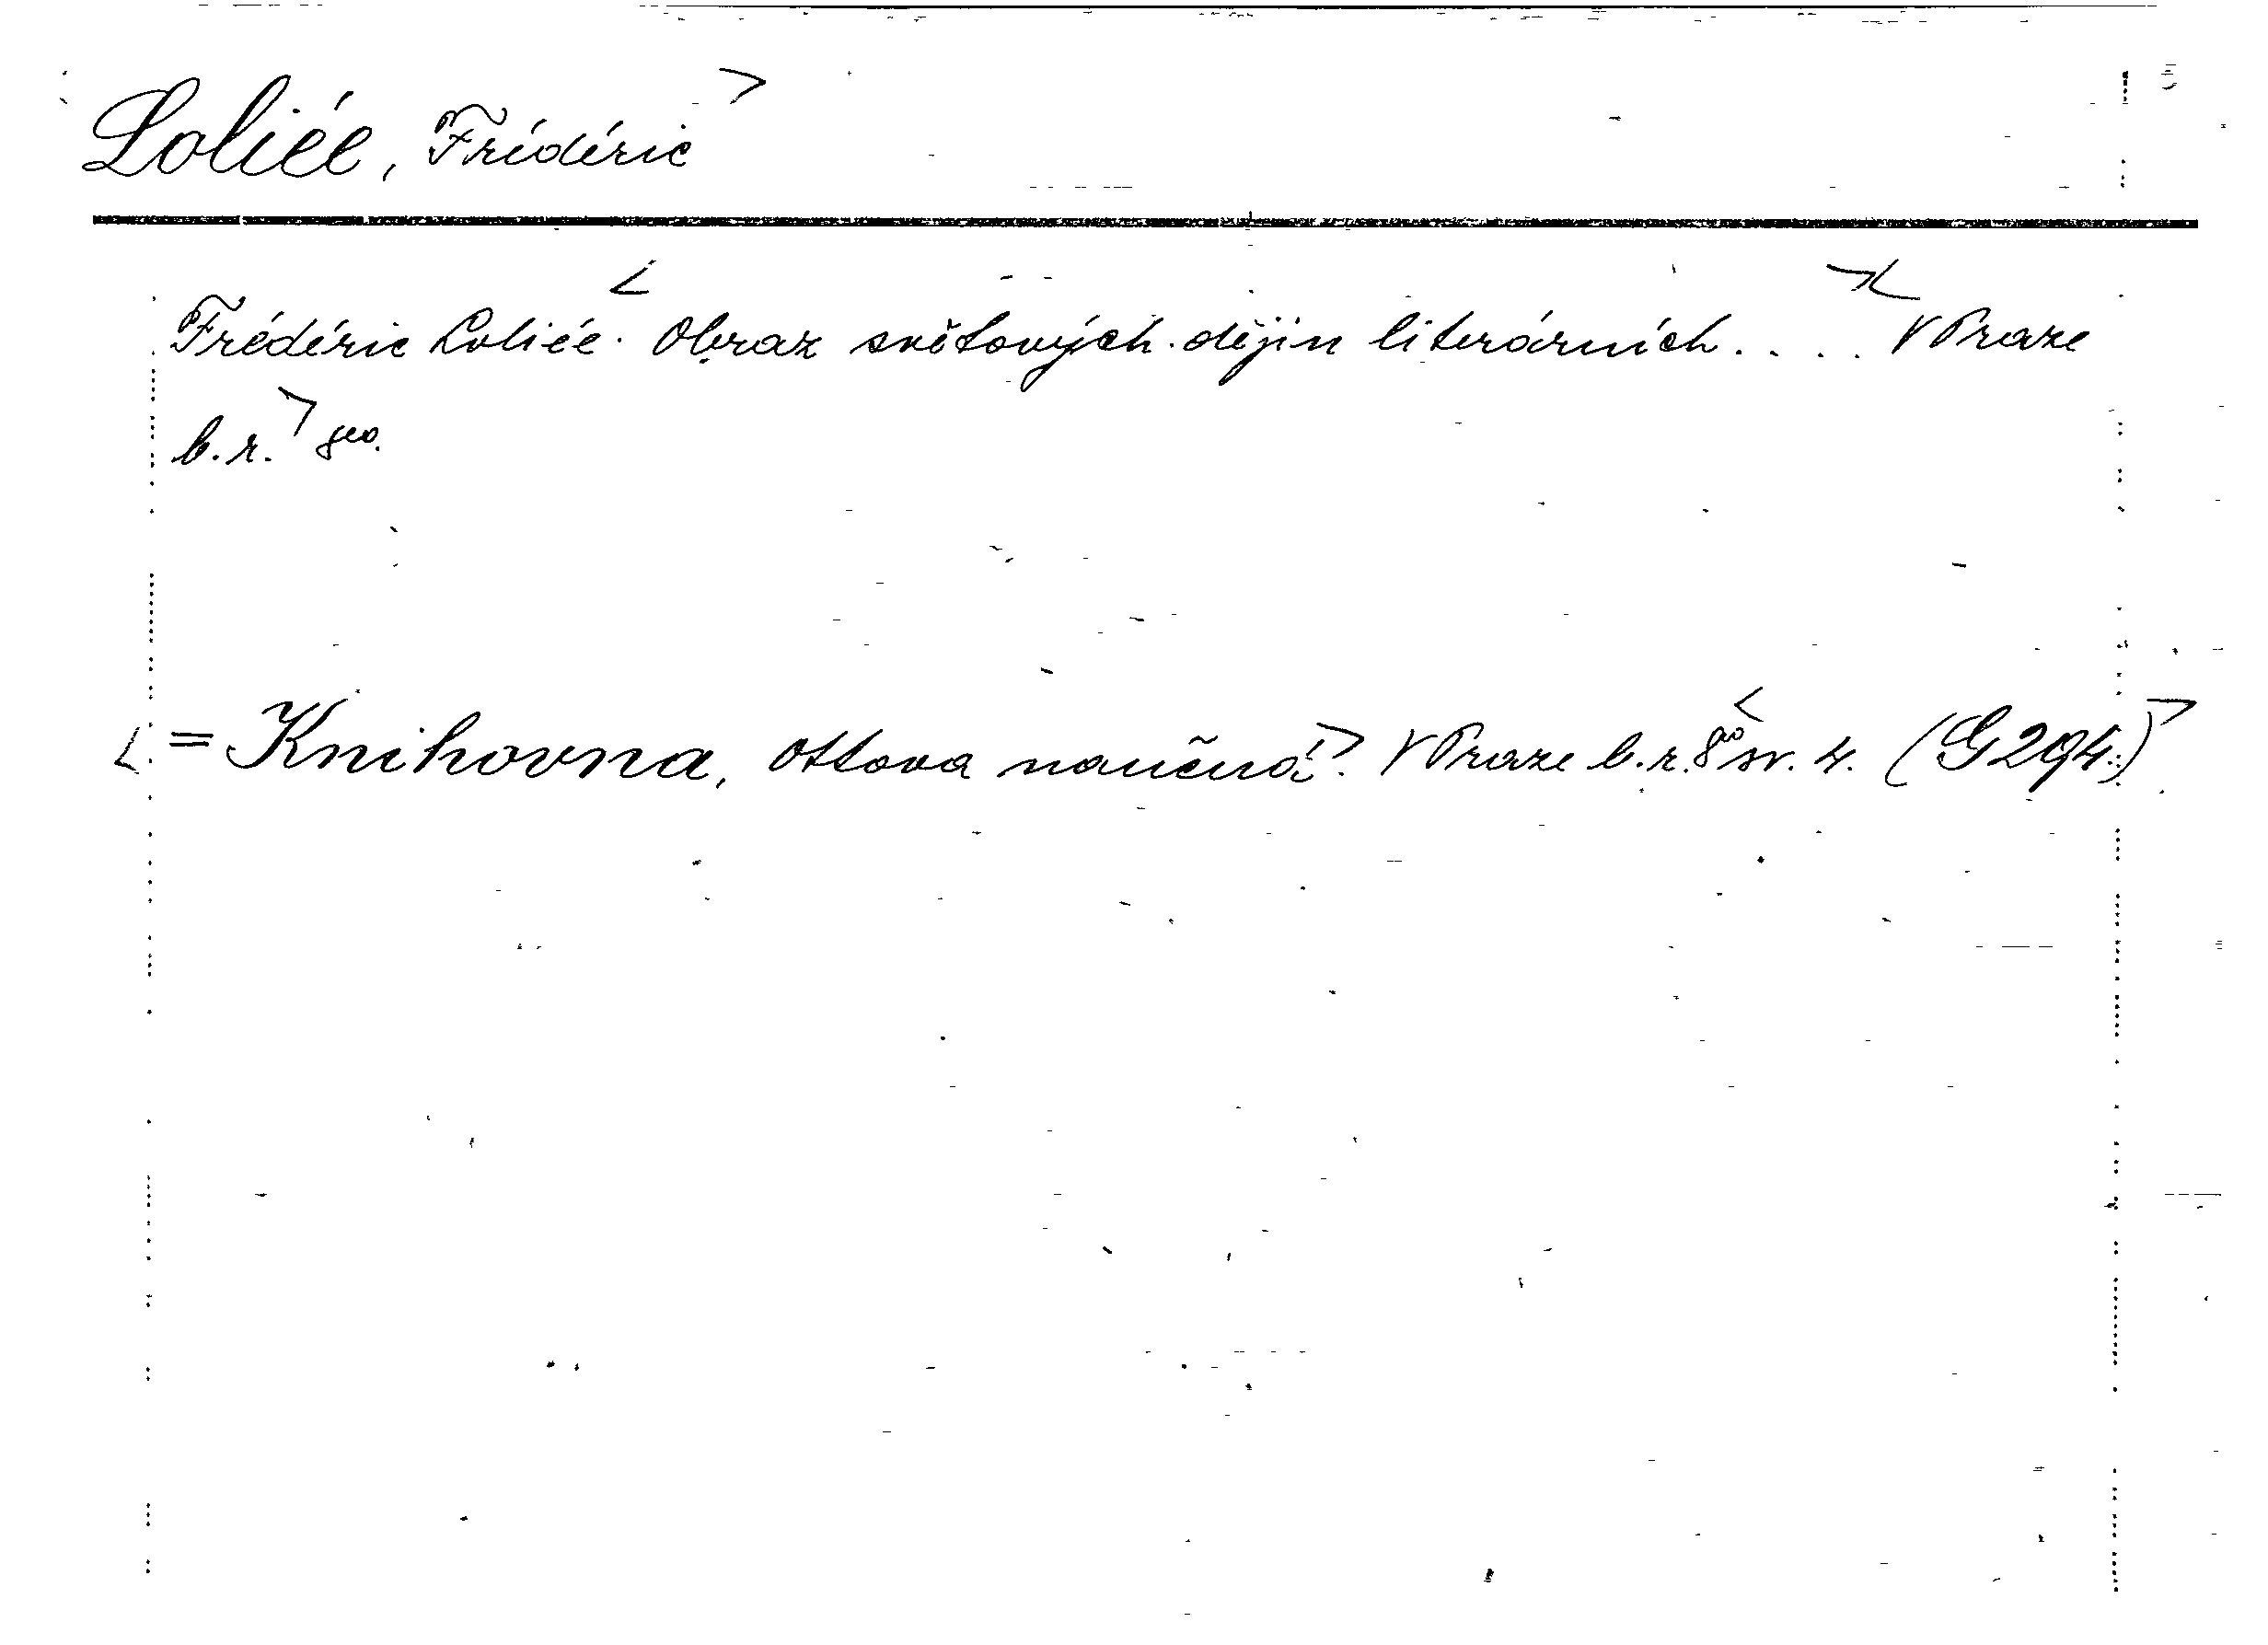 Loliée, Frédéric
Frédéric Loliée. Obraz světových dějin literárních.... V Praze
b. r. 8º.
= Knihovna, Ottova naučná. V Praze b. r. 8º sv. 4. (G 294.)